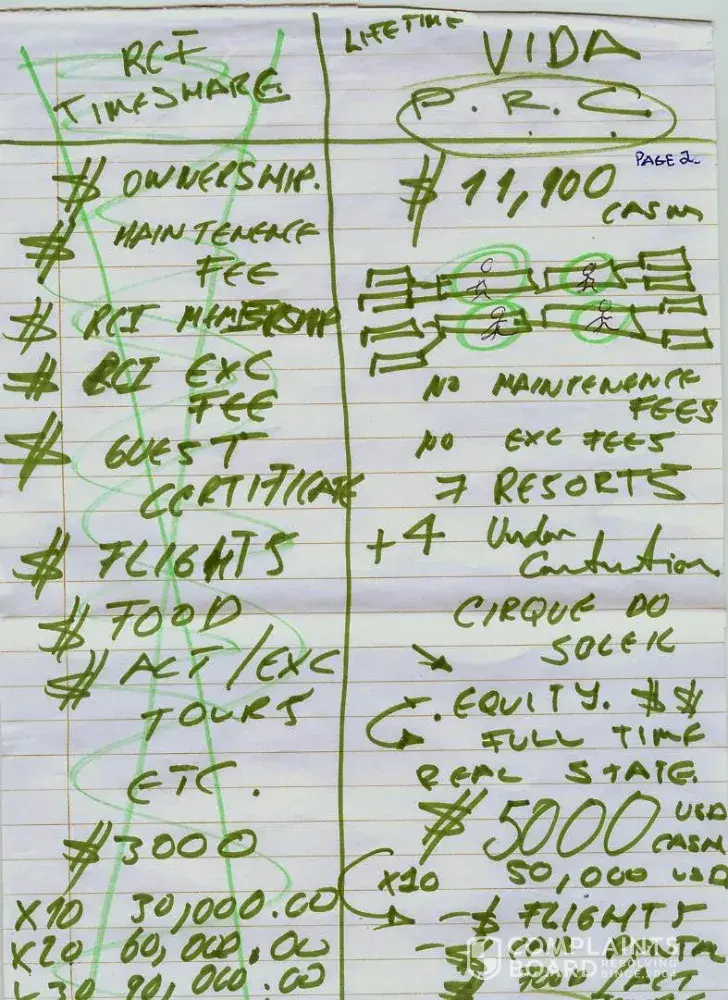 RCI
TIMESHARE
$ OWNERSHIP.
$ MAINTENENCE
FEE
$ RCI MEMBERSHIP
$ RCI EXC
FEE
$ GUEST
CERTIFICATE
$ FLIGHTS
$ FOOD
$ ACT/EXC
TOURS
ETC.
$3000
X10 30,000.00
X20 60,000.00
X30 90,000.00
LIFETIME
VIDA
P.R.C.
PAGE 2
$ 11,900
CASH
NO MAINTENENCE
FEES
NO EXC FEES
7 RESORTS
+4 Under
Contruction
CIRQUE DO
SOLEIL
. EQUITY. $ $
FULL TIME
REAL STATE.
$ 5000 USD
CASH
X10 50,000 USD
- $ FLIGHTS
- $
FOOD/ACT
COMPLAINTS
BOARD RESOLVING
SINCE 2004